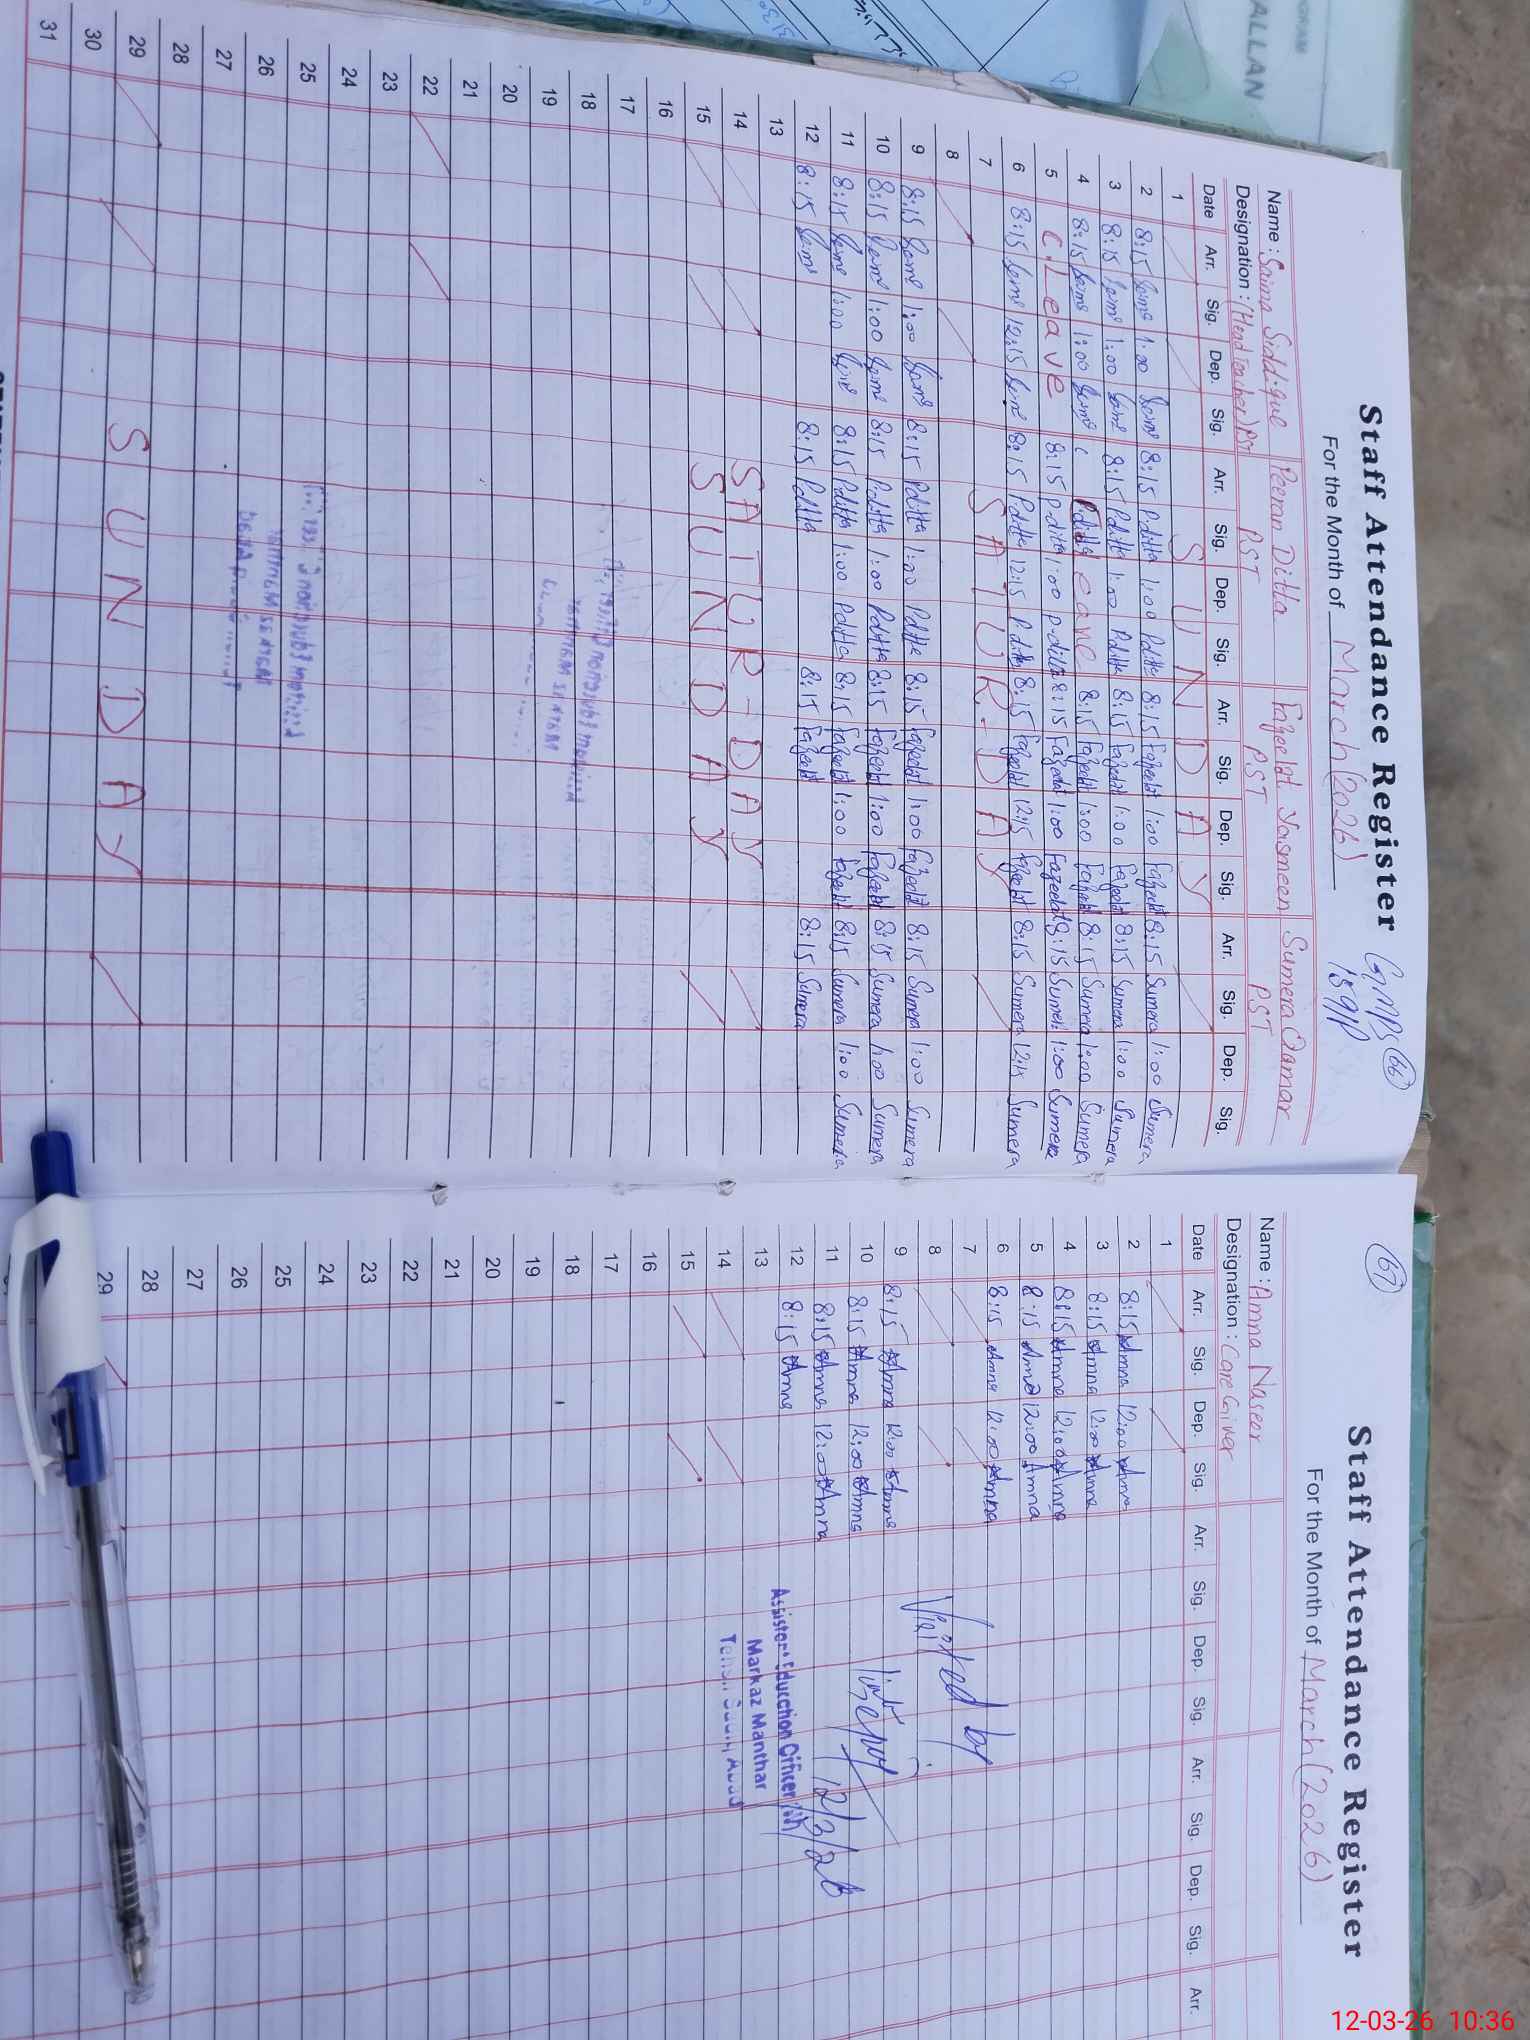 Staff Attendance Register
GMPS 66
189/P
For the Month of March (2026)
Name: Saima Siddique Peeran Ditta Fazeelat Yasmeen Sumera Qamar
Designation: (Head Teacher) PST PST PST PST
Date Arr. Sig. Dep. Sig. Arr. Sig. Dep. Sig. Arr. Sig. Dep. Sig. Arr. Sig. Dep. Sig.
1 SUNDAY
2 8:15 1:00 8:15 P.ditta 1:00 P.ditta 8:15 Fazeelat 1:00 Fazeelat 8:15 Sumera 1:00 Sumera
3 8:15 1:00 8:15 P.ditta 1:00 P.ditta 8:15 Fazeelat 1:00 Fazeelat 8:15 Sumera 1:00 Sumera
4 8:15 1:00 8:15 Fazeelat 1:00 Fazeelat 8:15 Sumera 1:00 Sumera
5 C.Leave 8:15 P.ditta 1:00 P.ditta 8:15 Fazeelat 1:00 Fazeelat 8:15 Sumera 1:00 Sumera
6 8:15 12:15 8:15 P.ditta 12:15 P.ditta 8:15 Fazeelat 12:15 Fazeelat 8:15 Sumera 12:15 Sumera
7 SATUR-DAY
8
9 8:15 1:00 8:15 P.ditta 1:00 P.ditta 8:15 Fazeelat 1:00 Fazeelat 8:15 Sumera 1:00 Sumera
10 8:15 1:00 8:15 P.ditta 1:00 P.ditta 8:15 Fazeelat 1:00 Fazeelat 8:15 Sumera 1:00 Sumera
11 8:15 1:00 8:15 P.ditta 1:00 P.ditta 8:15 Fazeelat 1:00 Fazeelat 8:15 Sumera 1:00 Sumera
12 8:15 8:15 P.ditta 8:15 Fazeelat 8:15 Sumera
13
14 SATUR-DAY
15 SUNDAY
16
17
18
19
20
21
22
23
24
25
26
27
28
29 SUNDAY
30
31
67
Staff Attendance Register
For the Month of March (2026)
Name: Amna Naseer
Designation: Care Giver
Date Arr. Sig. Dep. Sig. Arr. Sig. Dep. Sig. Arr. Sig. Dep. Sig. Arr.
1
2 8:15 Amna 12:00 Amna
3 8:15 Amna 12:00 Amna
4 8:15 Amna 12:00 Amna
5 8:15 Amna 12:00 Amna
6 8:15 Amna 12:00 Amna
7
8
9 8:15 Amna 12:00 Amna
10 8:15 Amna 12:00 Amna
11 8:15 Amna 12:00 Amna
12 8:15 Amna
13
14
15
16
17
18
19
20
21
22
23
24
25
26
27
28
29
Visited by
12/3/26
Assistant Education Officer
Markaz Manthar
ALLAN
12-03-26 10:36